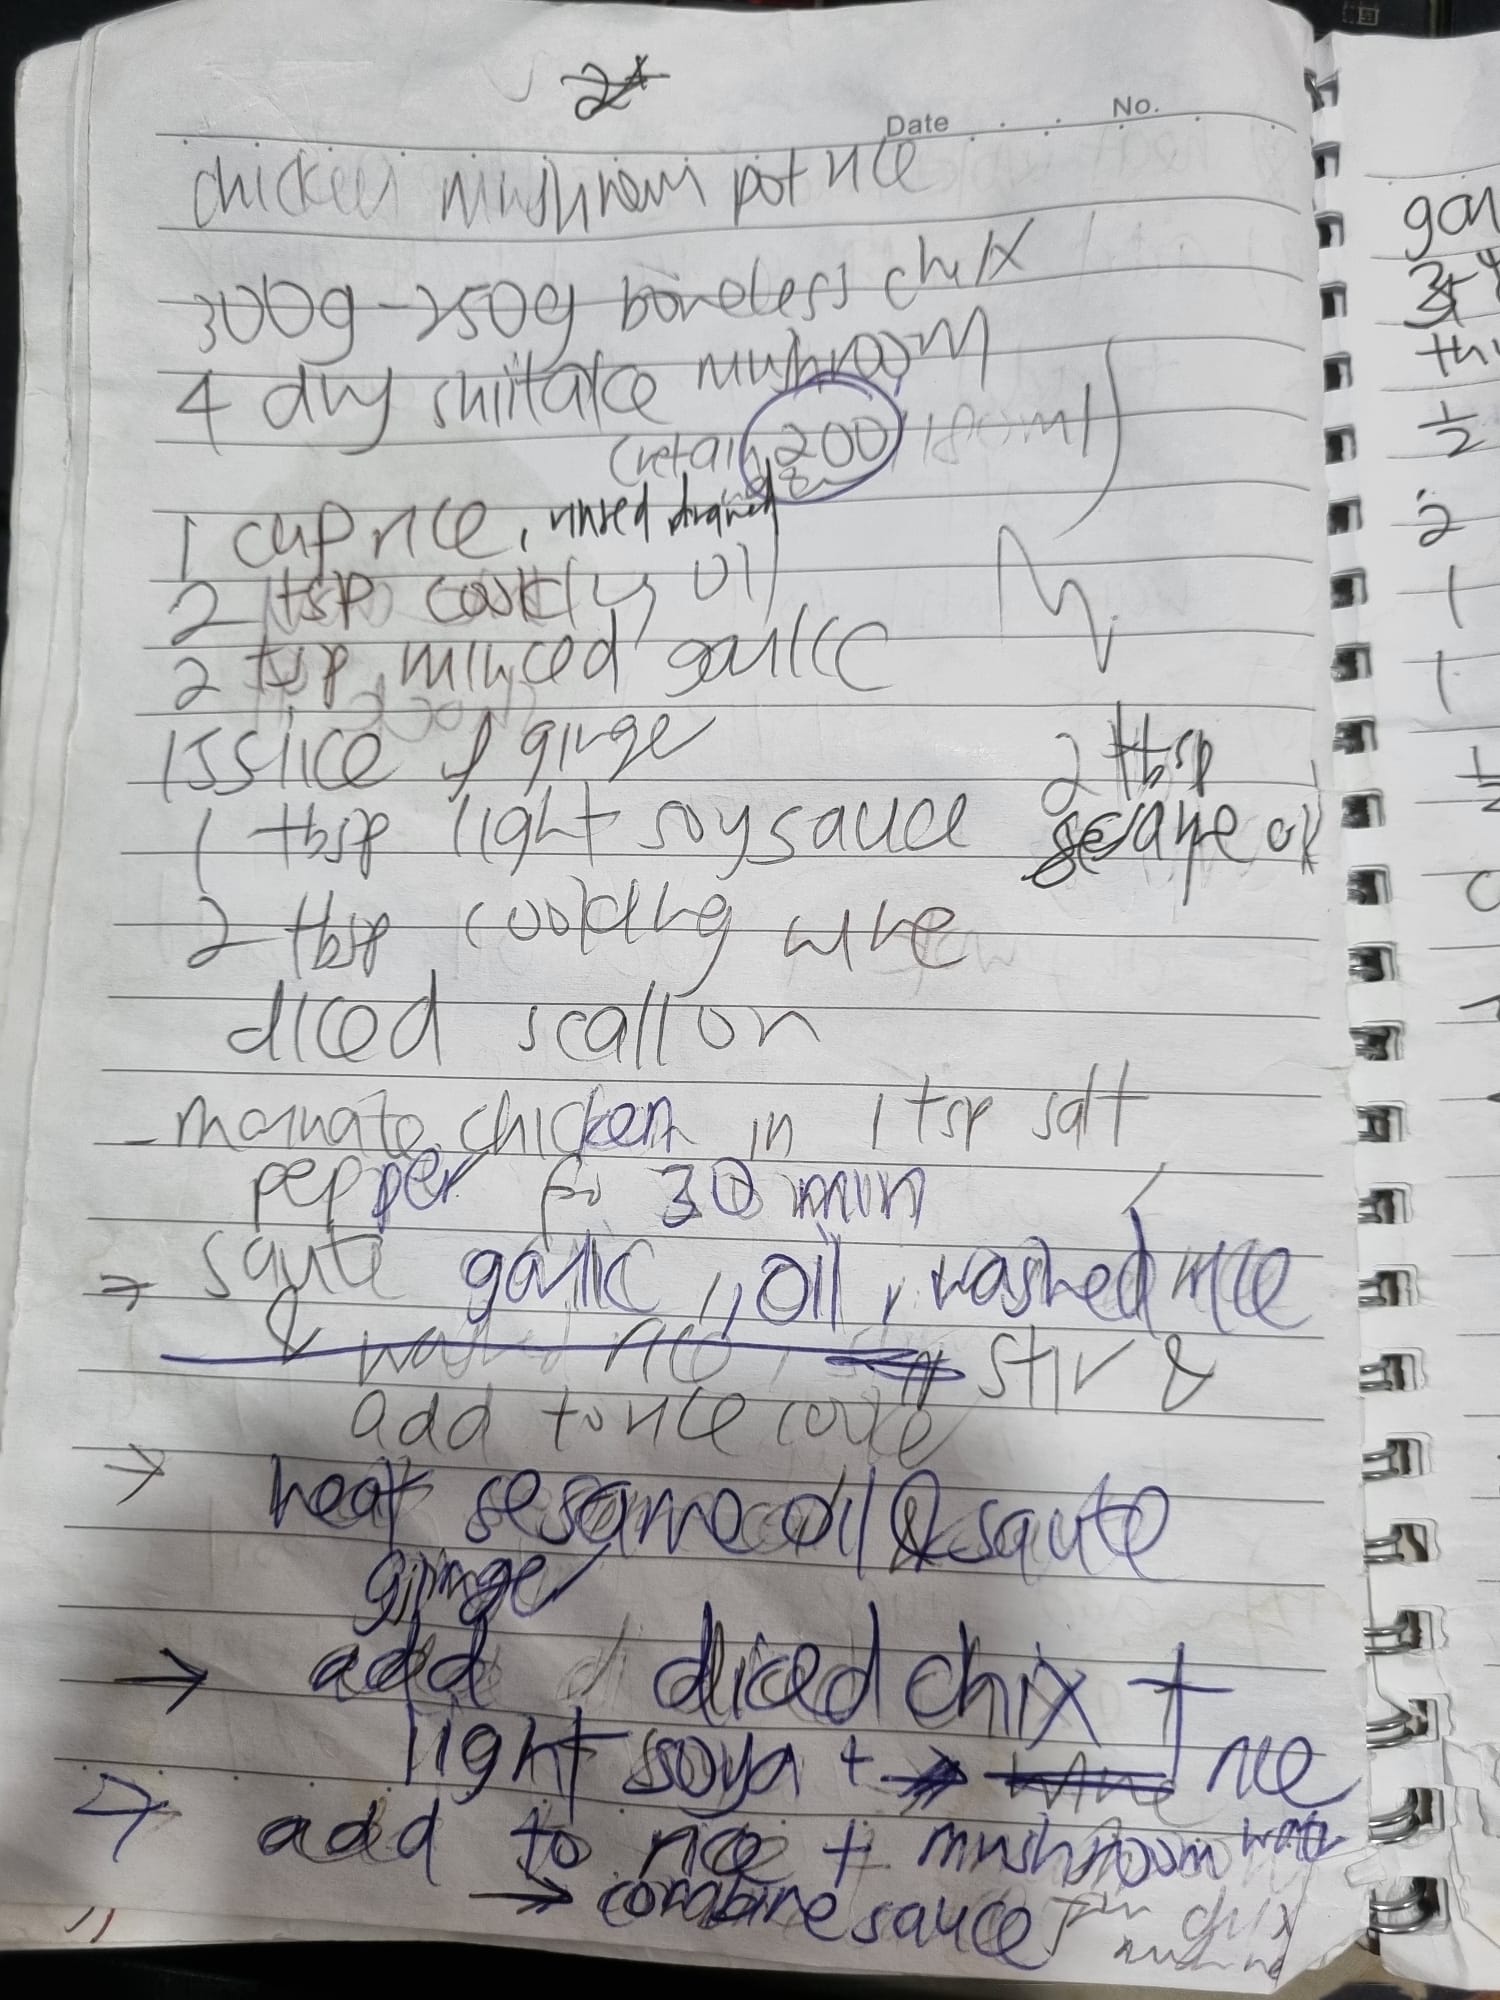 2x
Date No.
chicken mushroom pot rice
300g - 250g boneless chix
4 dry shiitake mushroom
(retain 200 180ml)
1 cup rice, rinsed drained
2 tsp cooking oil
2 tsp minced garlic
15 slice of ginge
1 tbsp light soy sauce
2 tbsp
sesame oil
2 tbsp cooking wine
diced scallion
- marinate chicken in 1 tsp salt
pepper for 30 min
→ saute garlic, oil, washed rice
& washed rice, stir &
add to rice cooke
→ heat sesame oil & saute
ginge
→ add diced chix +
light soya + → wine rice
→ add to rice + mushroom water
→ combine sauce chix
gar
1/2
2
1
1